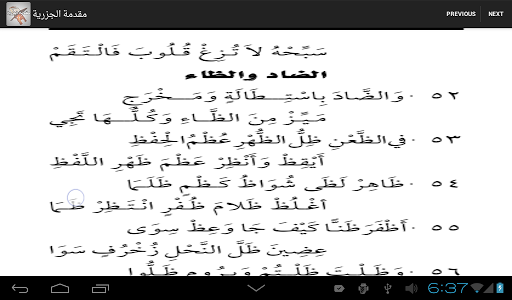 مقدمة الجزرية
PREVIOUS
NEXT
سَبِّحْهُ لاَ تُزِغْ قُلُوبَ فَالْتَقَمْ
الضاد والظاء
٥٢ وَالضَّادَ بِاسْتِطَالَةٍ وَمَخْرَجِ
مَيِّزْ مِنَ الظَّاءِ وَكُلُّهَا تَجِي
٥٣ فِي الظَّعْنِ ظِلُّ الظُّهْرِ عُظْمُ الْحِفْظِ
أَيْقِظْ وَأَنْظِرْ عَظْمَ ظَهْرِ اللَّفْظِ
٥٤ ظَاهِرْ لَظَى شُوَاظُ كَظْمٍ ظَلَمَا
اُغْلُظْ ظَلاَمَ ظُفْرٍ انْتَظِرْ ظَمَا
٥٥ أَظْفَرَ ظَنًّا كَيْفَ جَا وَعِظْ سِوَى
عِضِينَ ظَلَّ النَّحْلِ زُخْرُفٍ سَوَا
٥٦ وَظَلْتَ ظَلْتُمْ وَبِرُومٍ ظَلُّوا
6:37